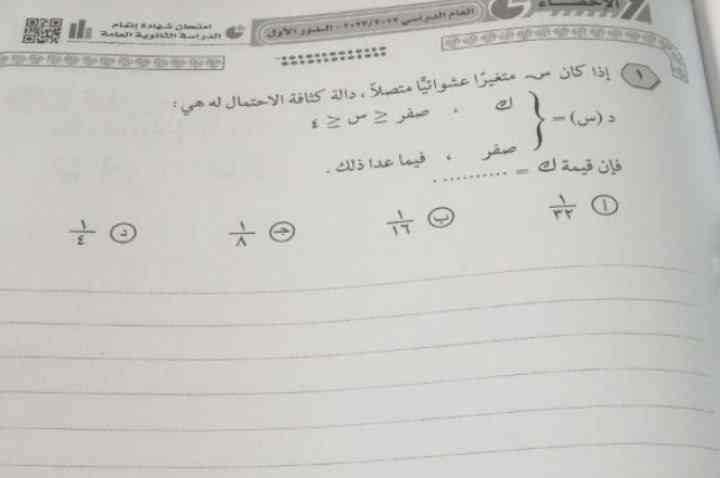 الإحصاء
العام الدراسي ٢٠٢٢/٢٠٢١ - الدور الأول
امتحان شهادة إتمام
الدراسة الثانوية العامة
١ إذا كان س متغيرًا عشوائيًا متصلاً ، دالة كثافة الاحتمال له هي :
د (س) = { ك ، صفر ≤ س ≤ ٤
صفر ، فيما عدا ذلك .
فإن قيمة ك = ..........
أ ١/٣٢ ب ١/١٦ ج ١/٨ د ١/٤